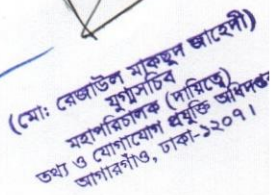 (মো: রেজাউল মাকছুদ জাহেদী)
যুগ্মসচিব
মহাপরিচালক (দায়িত্বে)
তথ্য ও যোগাযোগ প্রযুক্তি অধিদপ্তর
আগারগাঁও, ঢাকা-১২০৭।